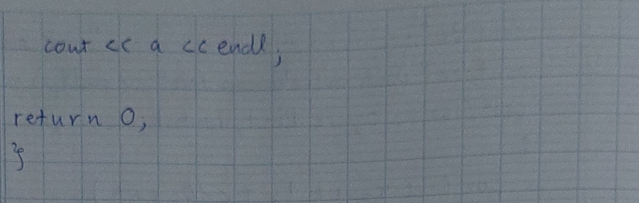 cout << a << endl;
return 0;
}